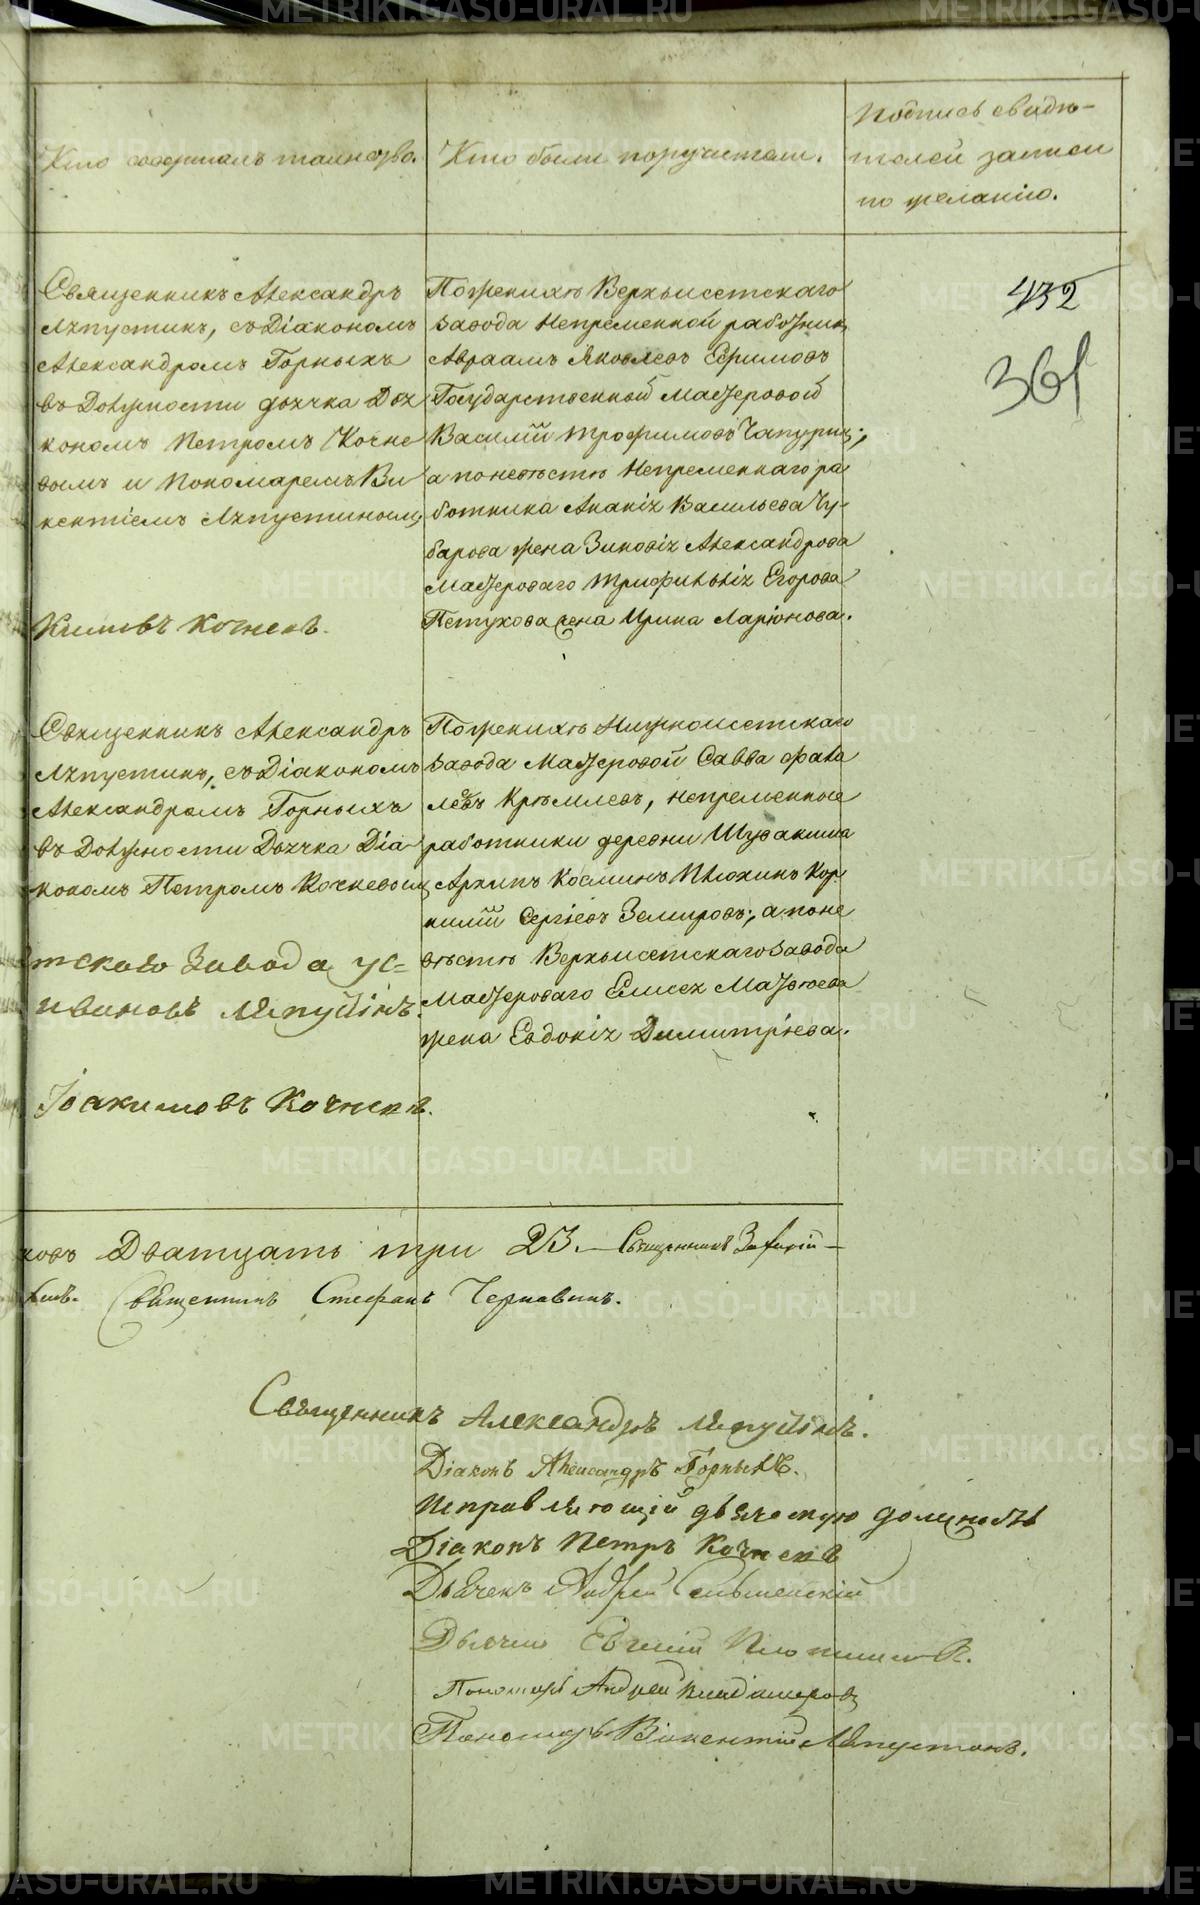 Кто совершалъ таинство.
Кто были поручители.
Подпись свидѣ-
телей записи
по желанію.
432
361
Священникъ Александръ
Ляпустинъ, съ Діакономъ
Александромъ Горныхъ
въ Должности дьячка Діа
кономъ Петромъ Кочне
вымъ и Пономаремъ Ви
кентіемъ Ляпустинымъ
Кимовъ Кочневъ.
По женихѣ Верхъисетскаго
завода Непременной работникъ
Авраамъ Яковлевъ Ефимовъ
Государственной Мастеровой
Василій Трофимовъ Чапуринъ;
а по невѣстѣ Непременнаго ра
ботника Ананія Васильева Чу-
барова жена Зиновія Александрова
Мастероваго Трифилія Егорова
Петухова жена Ирина Ларіонова.
Священникъ Александръ
Ляпустинъ, съ Діакономъ
Александромъ Горныхъ
въ Должности Дьячка Діа
кономъ Петромъ Кочневымъ
тскаго Завода ус=
Ивановъ Ляпустинъ.
Іоакимовъ Кочневъ.
По женихѣ Нижноисетскаго
завода Мастеровой Савва Фала
леевъ Крѣмлевъ, непременные
работники деревни Шувакиша
Архипъ Косминъ Плюхинъ Кор
нилій Сергіевъ Земировъ; а по не
вѣстѣ Верхъисетскаго завода
Мастероваго Елисея Матвѣева
жена Евдокія Димитріева.
ковъ Дватцать три 23. — Священникъ —
Священникъ Стефанъ Чернавинъ.
Священникъ Александръ Ляпустинъ.
Діаконъ Александръ Горныхъ.
Исправляющій дьяческую должность
Діаконъ Петръ Кочневъ
Дьячекъ Андрей
Дьячекъ Евгеній Плотниковъ.
Пономарь Андрей Владимеровъ
Пономарь Викентій Ляпустинъ.
METRIKI.GASO-URAL.RU